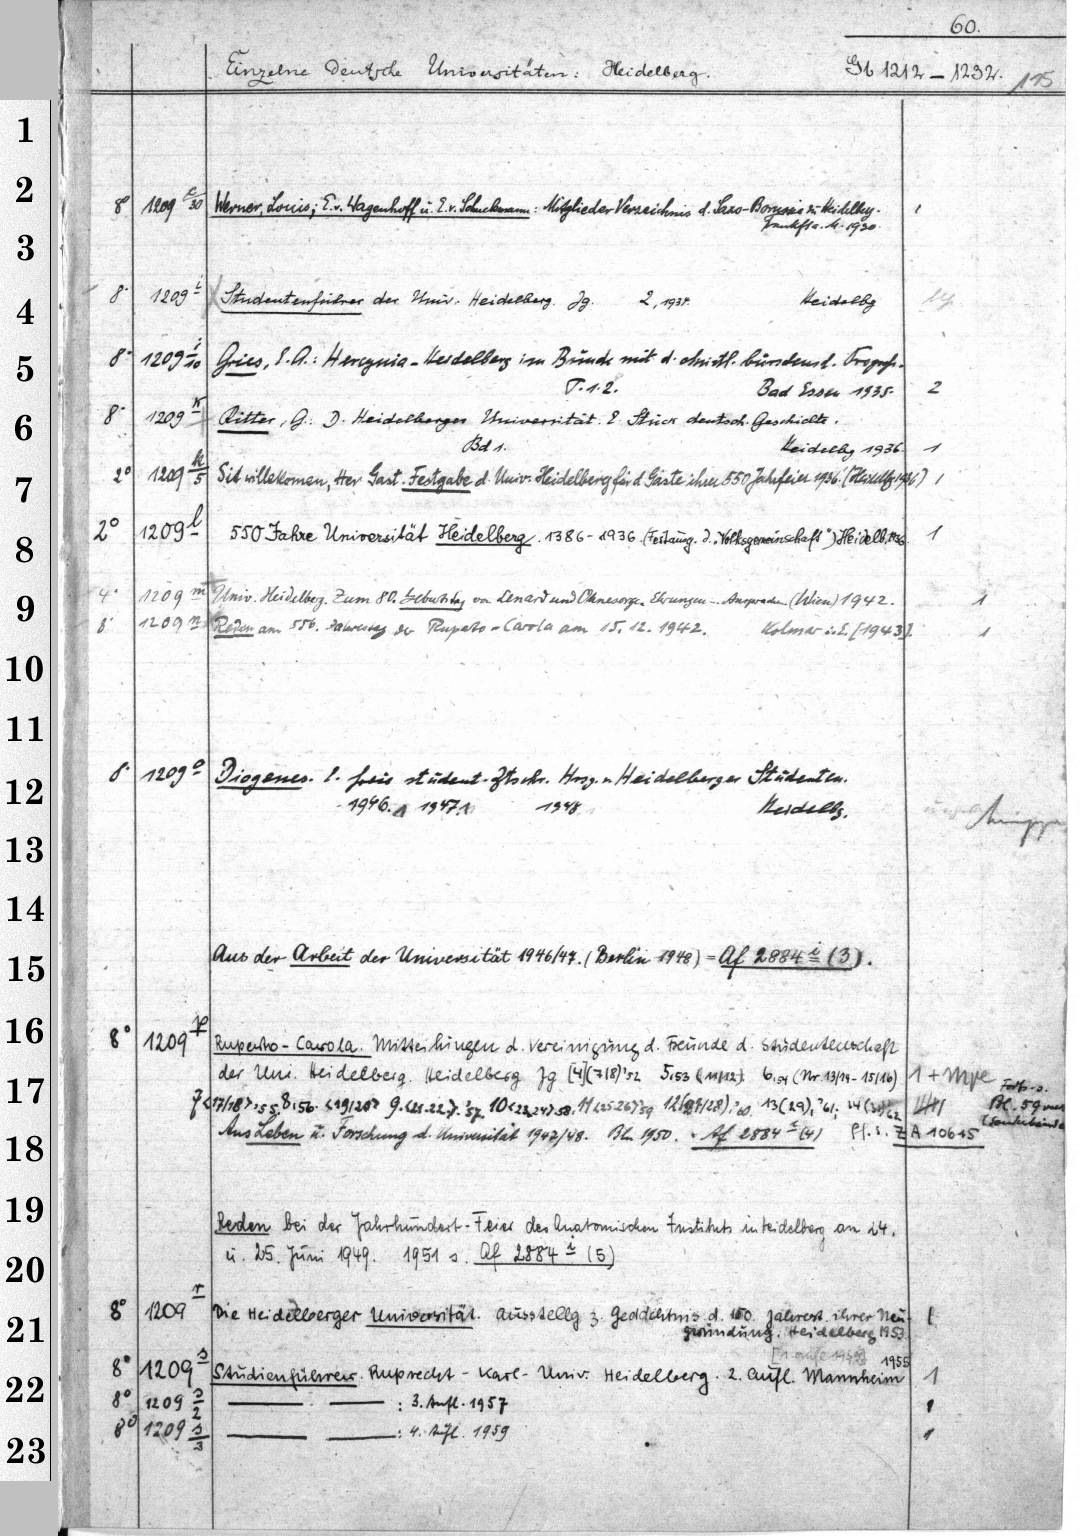 60.
Einzelne Deutsche Universitäten: Heidelberg. Gb 1212 – 1232. 115
1
2
8° 1209 e/30 Werner, Louis; E.v. Wagenhoff u. E.v. Schuckmann: Mitglieder Verzeichnis d. Saxo-Borussia zu Heidelbg. 1
Frankft a. M. 1930.
3
8° 1209 i Studentenführer der Univ. Heidelberg. Jg. 2, 1938. Heidelbg
4
8° 1209 i/10 Gries, E.A.: Hercynia-Heidelberg im Bunde mit d. christl. bürdensch.
5
T. 1.2. Bad Essen 1935. 2
8° 1209 k Ritter, G.: D. Heidelberger Universität. E. Stück deutsch. Geschichte.
6
Bd 1. Heidelbg 1936. 1
2° 1209 k/5 Sit willekomen, Her Gast. Festgabe d. Univ. Heidelberg für d. Gäste ihrer 550 Jahrfeier 1936. 1
7
2° 1209 l 550 Jahre Universität Heidelberg. 1386-1936. (Festausg. d. „Volksgemeinschaft") Heidelb. 1936. 1
8
4° 1209 m Univ. Heidelberg. Zum 80. Geburtstag von Lenard und Ohnesorge. Ehrungen Ansprachen (Wien) 1942. 1
9
8° 1209 n Reden am 556. Jahrestag der Ruperto-Carola am 15.12.1942. Kolmar i. E. [1943]. 1
10
11
8° 1209 o Diogenes. E. freie student. Ztschr. Hrsg. v. Heidelberger Studenten.
12
1946. 1 1947. 1 1948 Heidelbg.
13
14
Aus der Arbeit der Universität 1946/47. (Berlin 1948) = Af 2884 i (3).
15
16
8° 1209 p Ruperto-Carola. Mitteilungen d. Vereinigung d. Freunde d. Studentenschaft
der Uni. Heidelberg. Heidelberg Jg [4] (7/8) '52 5,53 (11/12) 6,54 (Nr. 13/14-15/16) 1 + Mpe
17
7<17/18>,'55. 8,'56. <19/20> 9.<21.22>.'57. 10<23,24>58. 11<25 26>59 12(27/28),'60. 13(29),'61; 14(31)62 Bl. 59
Aus Leben u. Forschung d. Universität 1947/48. Bln 1950. = Af 2884 i (4) Pf. s. ZA 10615
18
19
Reden bei der Jahrhundert-Feier des Anatomischen Instituts in Heidelberg am 24.
u. 25. Juni 1949. 1951 s. Af 2884 i (5)
20
8° 1209 r Die Heidelberger Universität. Ausstellg z. Gedächtnis d. 150. Jahrest. ihrer Neu- 1
21
gründung. Heidelberg 1953.
8° 1209 s Studienführer. Ruprecht-Karl-Univ. Heidelberg. 2. Aufl. Mannheim 1955 1
22
8° 1209 s/2 — — : 3. Aufl. 1957 1
8° 1209 s/3 — — : 4. Aufl. 1959 1
23